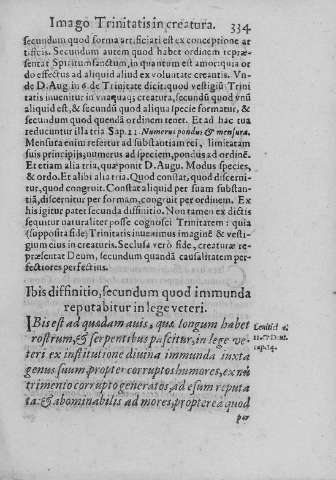 Imago Trinitatis in creatura. 334
secundum quod forma artificiati est ex conceptione ar
tificis. Secundum autem quod habet ordinem repræ-
sentat Spiritum sanctum, in quantum est amor: quia or
do effectus ad aliquid aliud ex voluntate creantis. Vn-
de D. Aug. in 6. de Trinitate dicit, quod vestigiũ Trini
tatis inuenitur in vnaquaq; creatura, secundũ quod vnũ
aliquid est, & secundũ quod aliqua specie formatur, &
secundum quod quendã ordinem tenet. Et ad hæc tua
reducuntur illa tria Sap. 11. Numerus pondus & mensura.
Mensura enim refertur ad substãtiam rei, limitatam
suis principijs, numerus ad speciem, pondus ad ordinẽ.
Et etiam alia tria, quæ ponit D. Augu. Modus species,
& ordo. Et alibi alia tria. Quod constat, quod discerni-
tur, quod congruit. Constat aliquid per suam substan-
tiã, discernitur per formam, congruit per ordinem. Ex
his igitur patet secunda diffinitio. Non tamen ex dictis
sequitur naturaliter posse cognosci Trinitatem: quia
(supposita fide) Trinitatis inuenimus imaginẽ & vesti-
gium eius in creaturis. Seclusa verò fide, creaturæ re
præsentat Deum, secundum quandã causalitatem per-
fectiores perfectius.
Ibis diffinitio, secundum quod immunda
reputabitur in lege veteri.
IBis est ad quodam auis, quæ longum habet
rostrum, & serpentibus pascitur, in lege ve-
teri ex institutione diuina immunda iuxta
genus suum, propter corruptos humores, ex nu
trimento corrupto generatos, ad esum reputa
ta: & abominabilis ad mores, propterea quod
Leuitici
11. & D.
cap. 14.
per